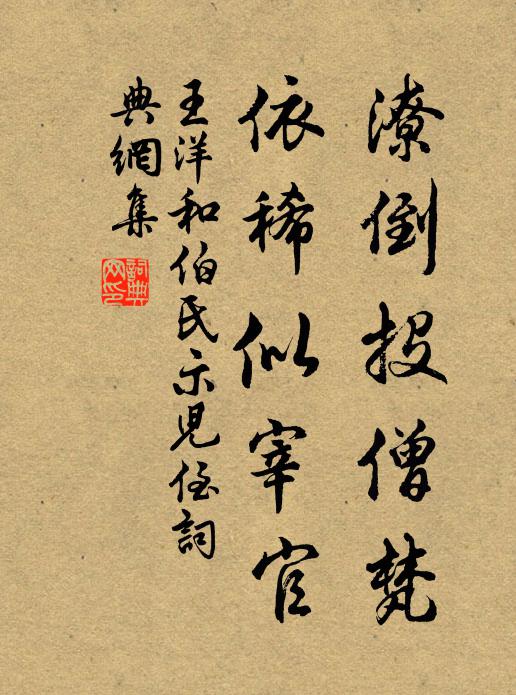 潦倒投僧梵
依稀似宰官
王洋和伯氏示児侄詞
典網集
詞典
网印